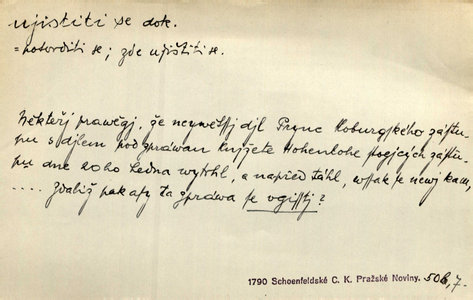 ujistiti se dok.
= potvrditi se; zde ujištiti se.
Někteřj prawěgj, že neywětssj djl Prync Koburgského zástu-
pu s djlem pod spráwau Knjžete Hohenlohe stogjcých zástu-
pu dne 20ho Ledna wytrhl, a napřed táhl, wssak se newj kam,
.... zdaliž pak ta zpráwa se vgistj?
1790 Schoenfeldské C. K. Pražské Noviny. 506, 7.